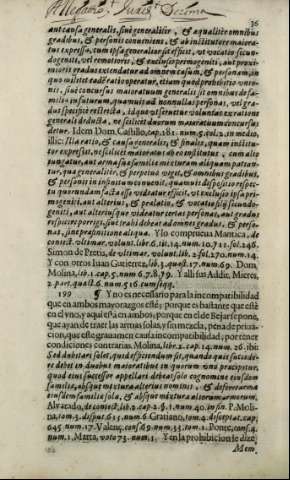 Allegacion Juris Dezima
36
aut causa generalis, siuè generaliter, & æqualitèr omnibus
gradibus, & personis conueniens, & ab institutore maiora-
tus expressa, cum ipsa generaliter sit efficit, vt vocatio sit se-
cundogeniti, vel remotioris, & exclusio primogeniti, aut proxi-
mioris gradus extendatur ad omnem casum, & personam, in
quo militet eadē ratio operatur, etiam quod prohibitio conue-
niens, siuè concursus maioratuum generalis sit omnibus de fa-
milia in futurum, quamuis ad nonnullas personas, vel gra-
dus specialitèr reflectta, id quod vsseruetur voluntas ex ratione
generali deducta, ne scilicet duorum maioratuum concursus
detur. Idem Dom. Castillo, cap. 181. num. 5. vol. 2. in medio,
illic: Si a ratio, & causa generalis, & finalis, quam instituto-
ter expressit, ne scilicet maioratus ab eo institutus cum alio
iungatur, aut arma sua familia mixturam aliquam patian-
tur, qua generalitèr, & perpetuò viget, & omnibus gradibus,
& personis in infinitum conuenit, quamuis dispositor respec-
tu quorundam facta disposi videatur efficit, vt exclusio ipsa pri-
mogeniti, aut alterius, & prælatio, & vocatio ipsius secundo-
geniti, aut alterius que videatur certas personas, aut gradus
respicere porrigi, siuè trahi debeat ad omnes gradus, & perso-
nas, siue præfinitione aliqua. Y lo comprueua Mantica, de
coniect. vltimar. volunt. lib. 6. tit. 14. num. 10. 7 11. fol. 246.
Simon de Pretis, de vltimar. volunt. lib. 2. fol. 270. num. 14.
Y con otros Iuan Gutierrez, lib. 3. quæst. 17. num. 69. Dom.
Molina, lib. 1. cap. 5. num. 6. 7. 8. 79. Y alli sus Addic. Mieres,
2. part. quæst. 6. num. 516. cum seqq.
199 ¶ Y no es necessario para la incompatibilidad
que en ambos mayorazgos esté; porque es bastante que esté
en el vno, y aqui està en ambos; porque en el de Bejar se pone,
que ayan de traer las armas solas, y sin mezcla, pena de priua-
cion, que este grauamen causa incompatibilidad; por tener
condiciones contrarias. Molina, lib. 2. cap. 14. num. 26. ibi:
Sed dubitari solet, quid efficiendum sit, quando quis succede-
re debet in duobus maioratibus in quorum vno præcipitur,
quod eius successor appellari debeat solo cognomine eiusdem
familiæ, absque mixtura alterius nominis, & deferre arma
eiusdem familiæ sola, & absque mixtura aliorum armorum.
Aluarado, de coniect. lib. 2. cap. 2. §. 1. num. 40. in fin. P. Moli-
na, tom. 3. disput. 615. num. 6. Gratiano, tom. 4. disceptat. cap.
645. num. 17. Valenç. cons. 69. num. 33. tom. 1. Ponte, cons. 4.
num. 1. Marta, voto 73. num. 1. Y en la prohibicion se dize,
Mem.